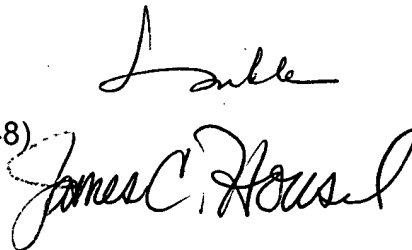 8)
James C. Housel